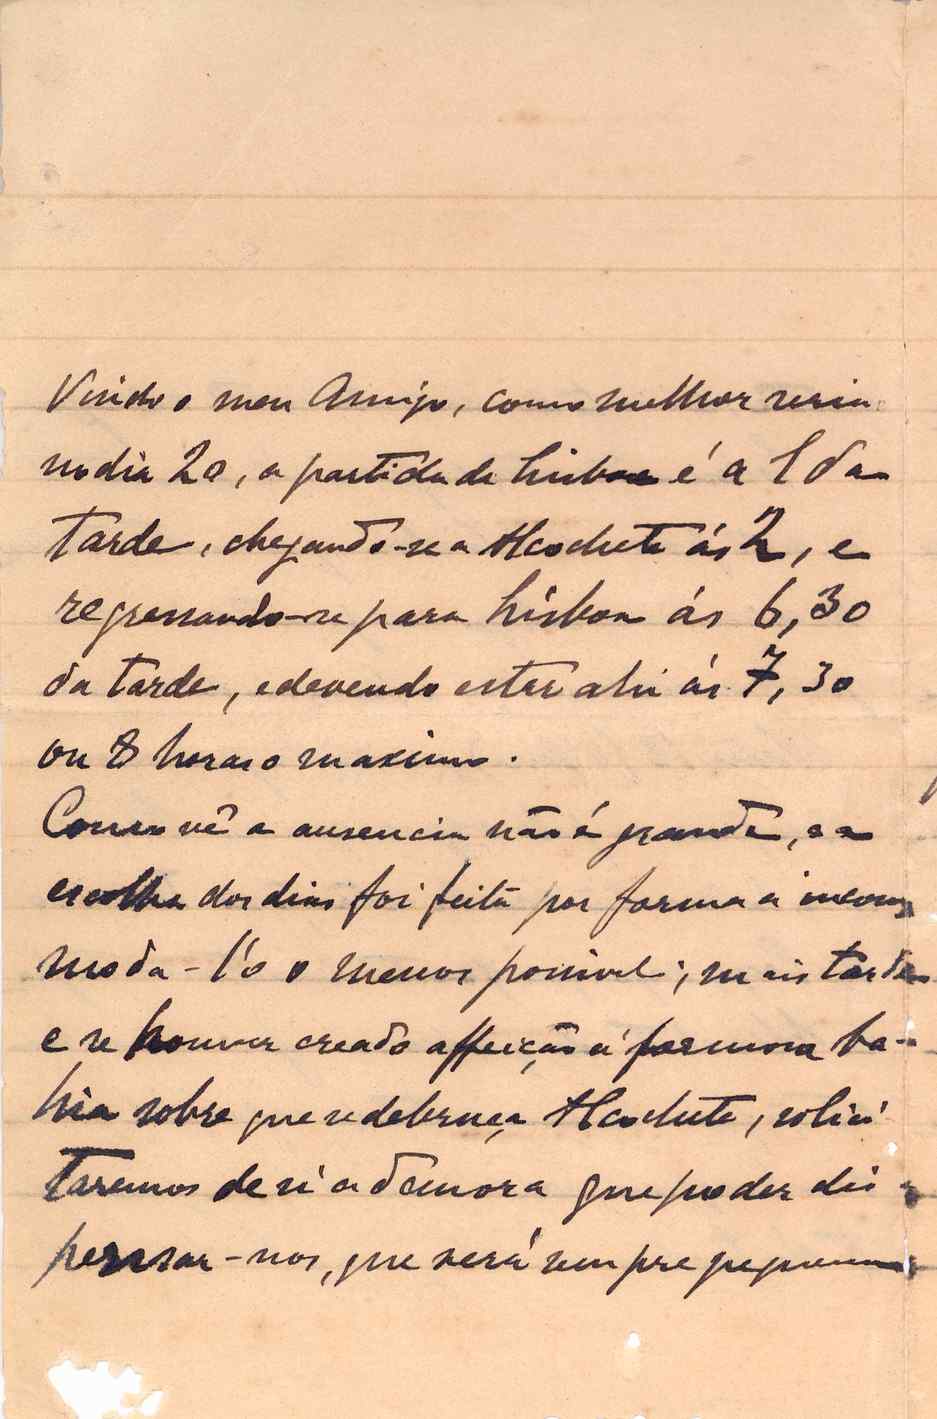 Vindo o meu Amigo, como melhor seria
no dia 20, a partida de Lisboa é a 1 da
tarde, chegando-se a Alcochete ás 2, e
regressando-se para Lisboa ás 6,30
da tarde, e devendo estar ahi ás 7,30
ou 8 horas o maximo.
Como vê a ausencia não é grande, e a
escolha dos dias foi feita por forma a incom
moda-l'o o menos possivel; mais tarde
e se houver creado affeição á formosa ba-
hia sobre que se debruça Alcochete, solici
taremos de si a demora que poder dis
pensar-nos, que será sempre pequena